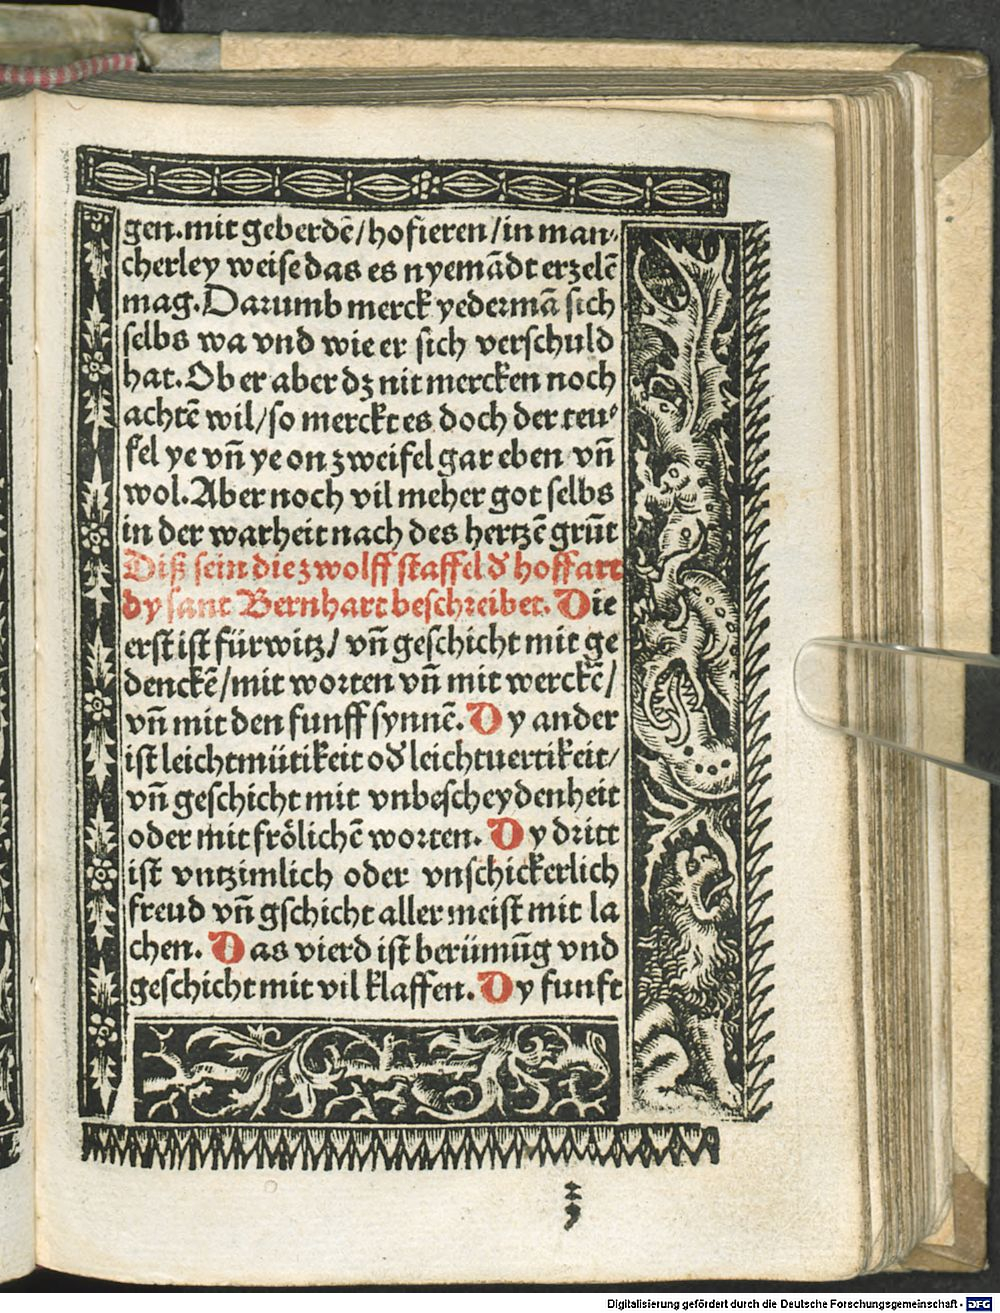 gen. mit geberdē/hofieren/in man⸗
cherley weise das es nyemādt erzelē
mag. Darumb merck yedermā sich
selbs wa vnd wie er sich verschuld
hat. Ob er aber dz nit mercken noch
achtē wil/so merckt es doch der teu⸗
fel ye vn̄ ye on zweifel gar eben vn̄
wol. Aber noch vil meher got selbs
in der warheit nach des hertzē grūt
Diß sein die zwolff staffel d̓ hoffart
dy sant Bernhart beschreibet. Die
erst ist fürwitz/ vn̄ geschicht mit ge
denckē/mit worten vn̄ mit werckē/
vn̄ mit den funff synnē. Dy ander
ist leichtmütikeit od̓ leichtuertikeit/
vn̄ geschicht mit vnbescheydenheit
oder mit frölichē worten. Dy dritt
ist vntzimlich oder vnschickerlich
freud vn̄ gschicht aller meist mit la
chen. Das vierd ist berümūg vnd
geschicht mit vil klaffen. Dy funft
Digitalisierung gefördert durch die Deutsche Forschungsgemeinschaft - DFG